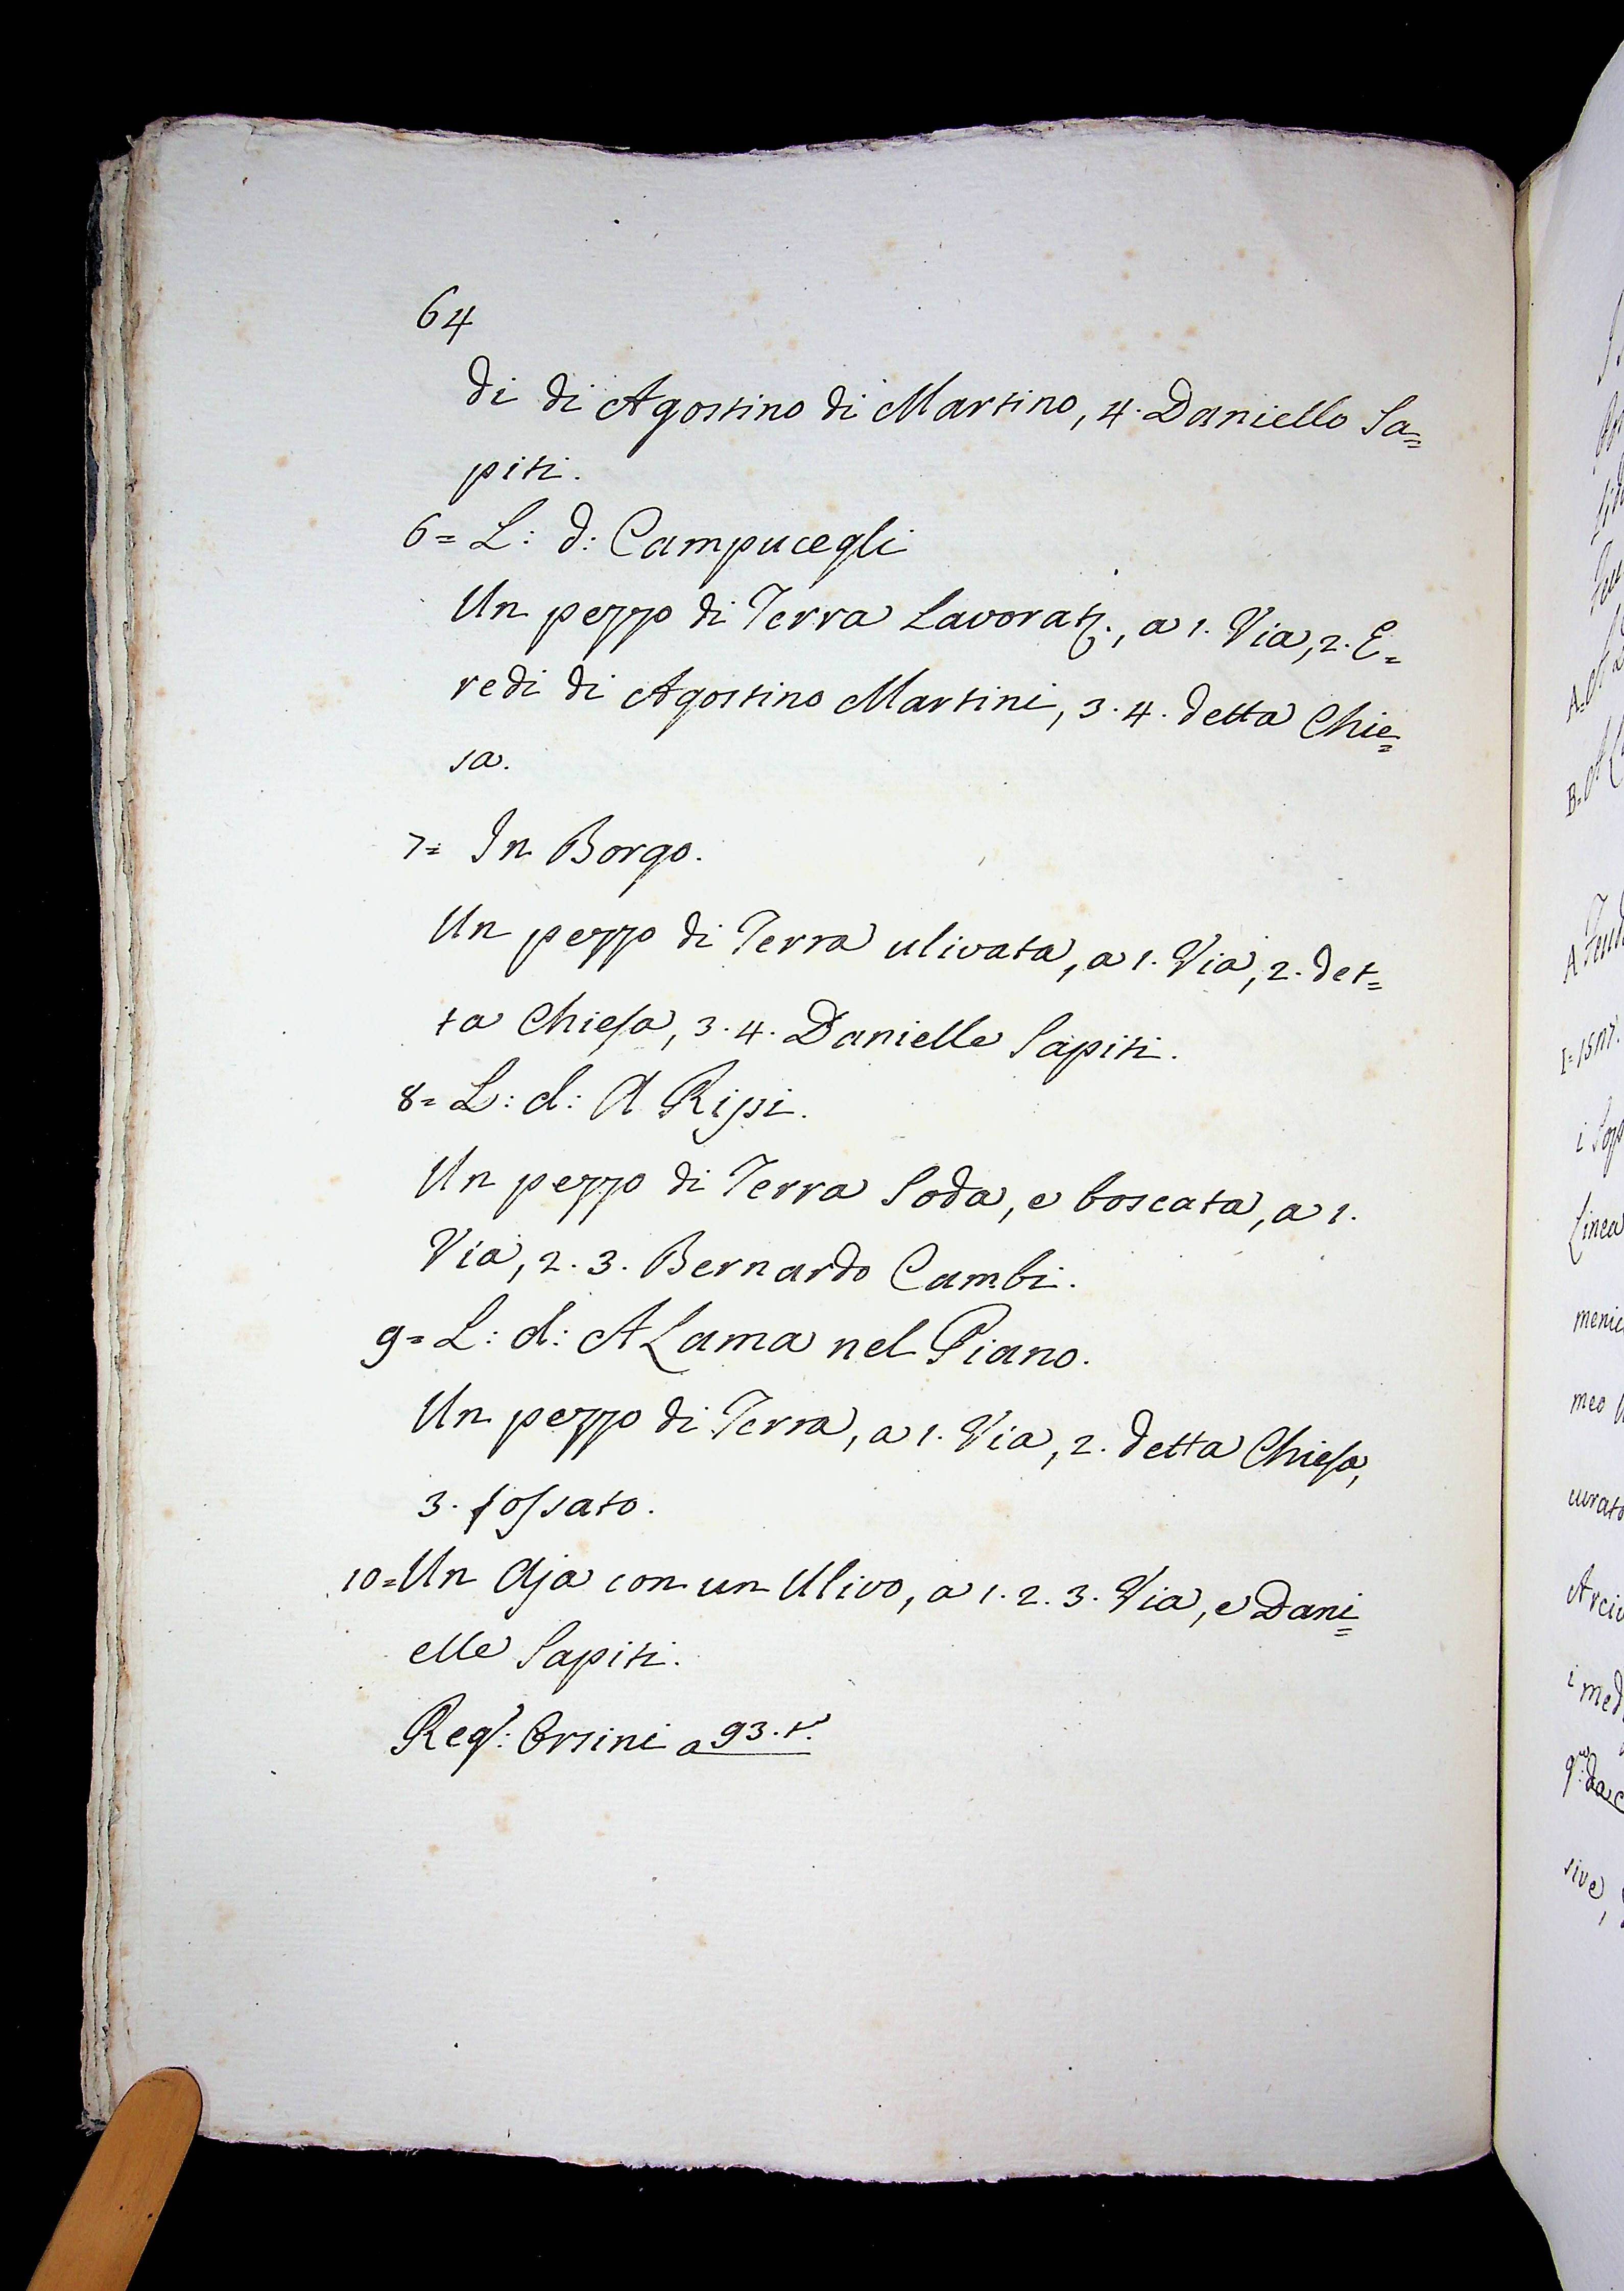 64
di di Agostino di Martino, 4. Daniello Sa=
piti.
6= L: d: Campucegli
Un pezzo di Terra Lavorat., a 1. Via, 2. E=
redi di Agostino Martini, 3. 4. detta Chie=
sa.
7= In Borgo.
Un pezzo di Terra ulivata, a 1. Via, 2. det=
ta Chiesa, 3. 4. Danielle Sapiti.
8= L: d: A Ripi.
Un pezzo di Terra Soda, e boscata, a 1.
Via, 2. 3. Bernardo Cambi.
9= L: d: A Lama nel Piano.
Un pezzo di Terra, a 1. Via, 2. detta Chiesa,
3. fossato.
10= Un Aja con un Ulivo, a 1. 2. 3. Via, e Dani=
elle Sapiti.
Reg: Orsini a 93. t.